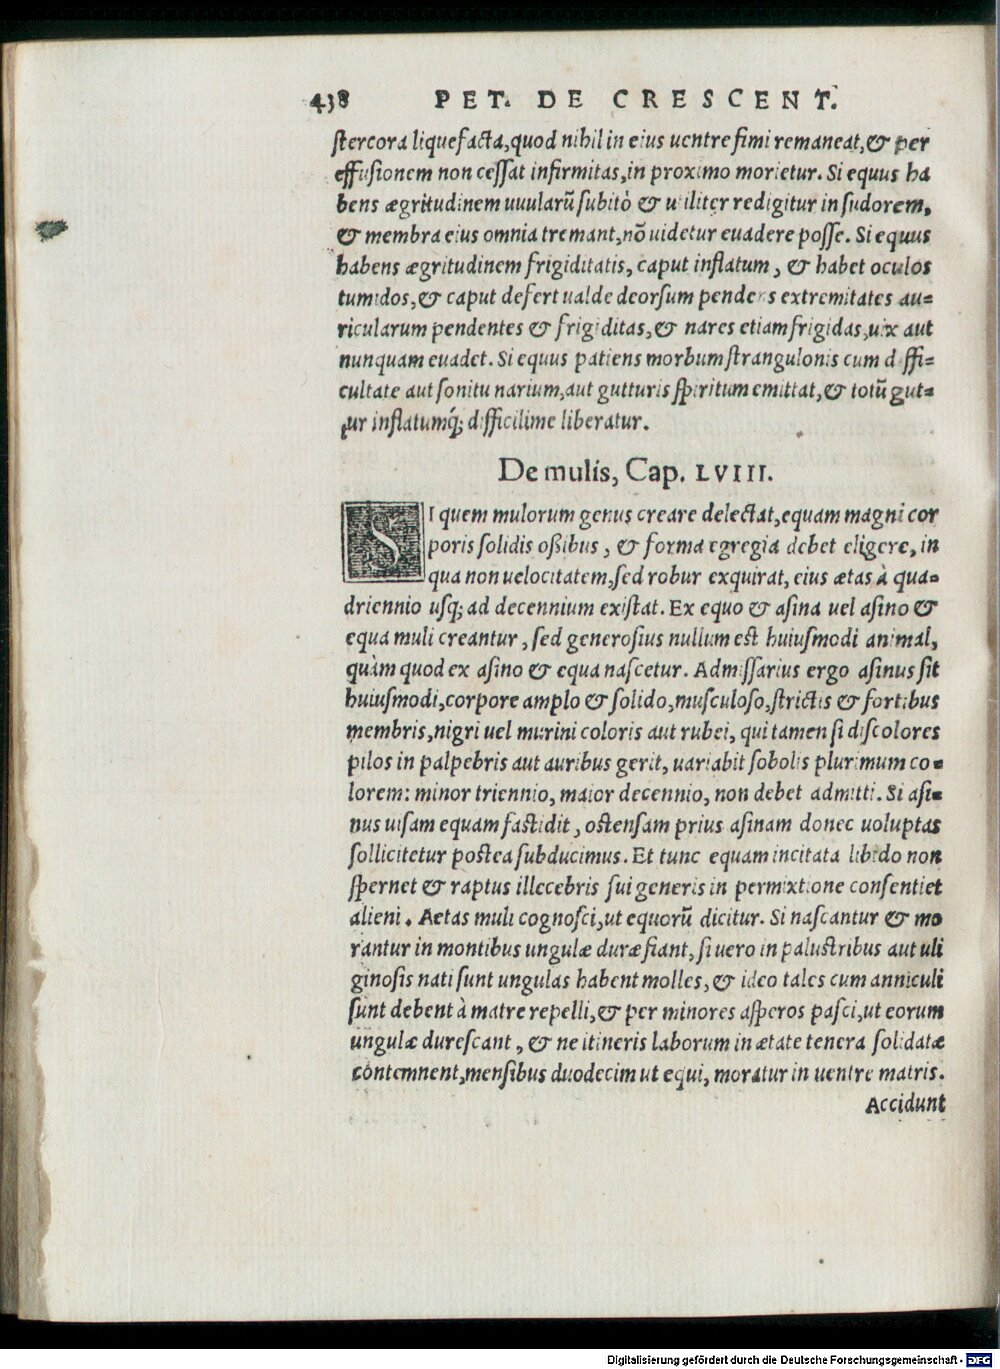 438 PET. DE CRESCENT.
stercora liquefacta, quod nihil in eius uentre fimi remaneat, & per
effusionem non cessat infirmitas, in proximo morietur. Si equus ha
bens ægritudinem uuularū subitò & uiliter redigitur in sudorem,
& membra eius omnia tremant, nō uidetur euadere posse. Si equus
habens ægritudinem frigiditatis, caput inflatum, & habet oculos
tumidos, & caput defert ualde deorsum pendens extremitates au=
ricularum pendentes & frigiditas, & nares etiam frigidas, uix aut
nunquam euadet. Si equus patiens morbum strangulonis cum diffi=
cultate aut sonitu narium, aut gutturis spiritum emittat, & totū gut=
tur inflatumq́; difficilime liberatur.
De mulis, Cap. LVIII.
SI quem mulorum genus creare delectat, equam magni cor
poris solidis oßibus, & forma egregia debet eligere, in
qua non uelocitatem, sed robur exquirat, eius ætas à qua=
driennio usq; ad decennium existat. Ex equo & asina uel asino &
equa muli creantur, sed generosius nullum est huiusmodi animal,
quàm quod ex asino & equa nascetur. Admissarius ergo asinus sit
huiusmodi, corpore amplo & solido, musculoso, strictis & fortibus
membris, nigri uel murini coloris aut rubei, qui tamen si discolores
pilos in palpebris aut auribus gerit, uariabit sobolis plurimum co=
lorem: minor triennio, maior decennio, non debet admitti. Si asi=
nus uisam equam fastidit, ostensam prius asinam donec uoluptas
sollicitetur postea subducimus. Et tunc equam incitata libido non
spernet & raptus illecebris sui generis in permixtione consentiet
alieni. Aetas muli cognosci, ut equorū dicitur. Si nascantur & mo
rantur in montibus ungulæ duræ fiant, si uero in palustribus aut uli
ginosis nati sunt ungulas habent molles, & ideo tales cum anniculi
sunt debent à matre repelli, & per minores asperos pasci, ut eorum
ungulæ durescant, & ne itineris laborum in ætate tenera solidatæ
contemnent, mensibus duodecim ut equi, moratur in uentre matris.
Accidunt
Digitalisierung gefördert durch die Deutsche Forschungsgemeinschaft - DFG